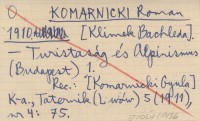 KOMARNICKI Roman
1910. [Klimek Bachleda].
— Turistaság és Alpinismus
(Budapest) 1.
Rec.: [Komarnicki Gyula]
K-a, Taternik (Lwów) 5 (1911),
nr 4: 75.